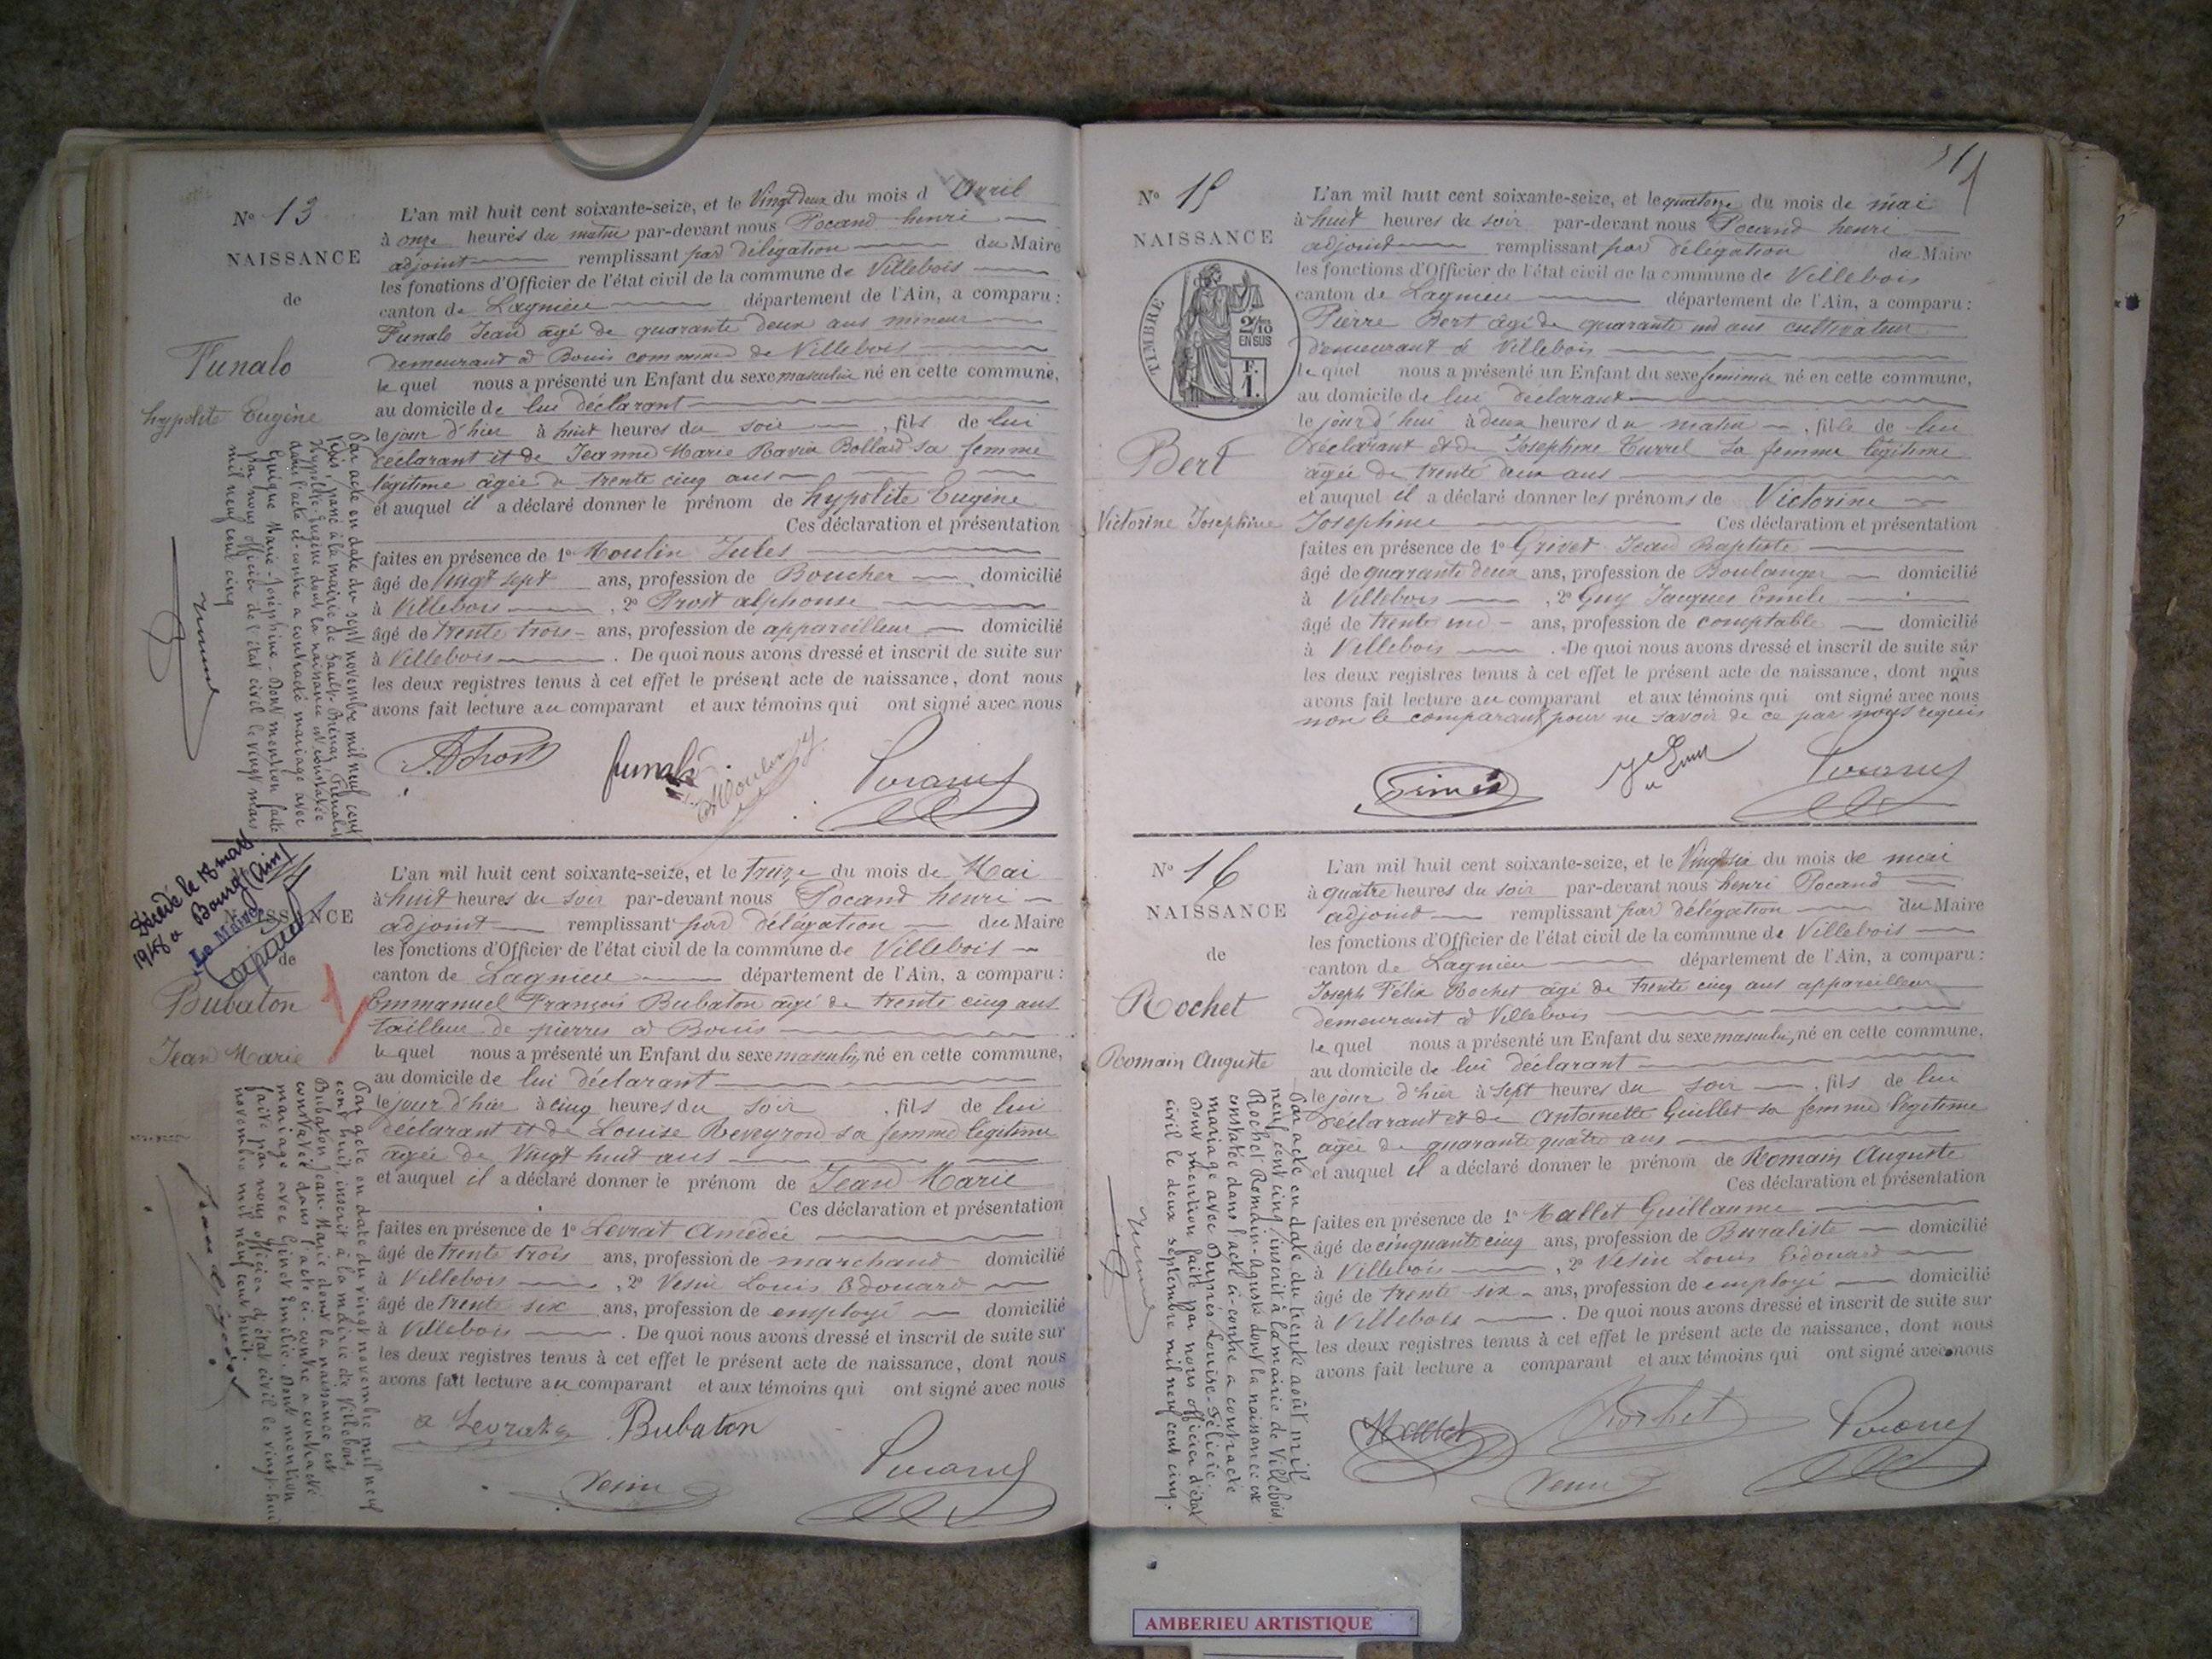 N° 13
NAISSANCE
de
Funalo
hypolite Eugène
L'an mil huit cent soixante-seize, et le Vingt deux du mois d' Avril
à onze heures du matin par-devant nous Pocand henri
adjoint remplissant par délégation du Maire
les fonctions d'Officier de l'état civil de la commune de Villebois
canton de Lagnieu département de l'Ain, a comparu :
Funalo Jean âgé de quarante deux ans mineur
demeurant à Bouis commune de Villebois
le quel nous a présenté un Enfant du sexe masculin né en cette commune,
au domicile de lui déclarant
le jour d'hier à huit heures du soir, fils de lui
déclarant et de Jeanne Marie Bollard sa femme
légitime âgée de trente cinq ans
et auquel il a déclaré donner le prénom de hypolite Eugène
Ces déclaration et présentation
faites en présence de 1° Moulin Jules
âgé de Vingt sept ans, profession de Boucher domicilié
à Villebois, 2° Prost alphonse
âgé de trente trois ans, profession de appareilleur domicilié
à Villebois. De quoi nous avons dressé et inscrit de suite sur
les deux registres tenus à cet effet le présent acte de naissance, dont nous
avons fait lecture au comparant et aux témoins qui ont signé avec nous
Par acte en date du sept novembre mil neuf cent
trois, passé à la mairie de Sault-Brénaz, Funalo
Hypolite-Eugène dont la naissance est constatée
dans l'acte ci-contre a contracté mariage avec
Guigue Marie-Joséphine. Dont mention faite
par nous officier de l'état civil le vingt mars
mil neuf cent cinq
A Prost funalo Moulin J. Pocand
Décédé le 18 mars
1948 à Bourg (Ain)
Le Maire
NAISSANCE
de
Bubaton
Jean Marie
L'an mil huit cent soixante-seize, et le treize du mois de Mai
à huit heures du soir par-devant nous Pocand henri
adjoint remplissant par délégation du Maire
les fonctions d'Officier de l'état civil de la commune de Villebois
canton de Lagnieu département de l'Ain, a comparu :
Emmanuel François Bubaton âgé de trente cinq ans
tailleur de pierres à Bouis
le quel nous a présenté un Enfant du sexe masculin né en cette commune,
au domicile de lui déclarant
le jour d'hier à cinq heures du soir, fils de lui
déclarant et de Louise Reveyron sa femme légitime
âgée de Vingt huit ans
et auquel il a déclaré donner le prénom de Jean Marie
Ces déclaration et présentation
faites en présence de 1° Levrat Amédée
âgé de trente trois ans, profession de marchand domicilié
à Villebois, 2° Vesin Louis Edouard
âgé de trente six ans, profession de employé domicilié
à Villebois. De quoi nous avons dressé et inscrit de suite sur
les deux registres tenus à cet effet le présent acte de naissance, dont nous
avons fait lecture au comparant et aux témoins qui ont signé avec nous
Par acte en date du vingt novembre mil neuf
cent huit, inscrit à la mairie de Villebois,
Bubaton Jean-Marie dont la naissance est
constatée dans l'acte ci-contre a contracté
mariage avec Ginet Emilie. Dont mention
faite par nous officier d'état civil le vingt-huit
novembre mil neuf cent huit.
a Levrat Bubaton
Vesin Pocand
N° 15
NAISSANCE
TIMBRE
2/10
EN SUS
F.
1.
Bert
Victorine Josephine
L'an mil huit cent soixante-seize, et le quatorze du mois de mai
à huit heures du soir par-devant nous Pocand henri
adjoint remplissant par délégation du Maire
les fonctions d'Officier de l'état civil de la commune de Villebois
canton de Lagnieu département de l'Ain, a comparu :
Pierre Bert âgé de quarante un ans cultivateur
demeurant à Villebois
le quel nous a présenté un Enfant du sexe féminin né en cette commune,
au domicile de lui déclarant
le jour d'hui à deux heures du matin, fille de lui
déclarant et de Josephine Turrel sa femme légitime
âgée de trente deux ans
et auquel il a déclaré donner les prénoms de Victorine
Josephine Ces déclaration et présentation
faites en présence de 1° Grivet Jean Baptiste
âgé de quarante deux ans, profession de Boulanger domicilié
à Villebois, 2° Guy Jacques Emile
âgé de trente un ans, profession de comptable domicilié
à Villebois. De quoi nous avons dressé et inscrit de suite sur
les deux registres tenus à cet effet le présent acte de naissance, dont nous
avons fait lecture au comparant et aux témoins qui ont signé avec nous
non le comparant pour ne savoir de ce par nous requis
Pocand
N° 16
NAISSANCE
de
Rochet
Romain Auguste
L'an mil huit cent soixante-seize, et le Vingt six du mois de mai
à quatre heures du soir par-devant nous henri Pocand
adjoint remplissant par délégation du Maire
les fonctions d'Officier de l'état civil de la commune de Villebois
canton de Lagnieu département de l'Ain, a comparu :
Joseph Félix Rochet âgé de trente cinq ans appareilleur
demeurant à Villebois
le quel nous a présenté un Enfant du sexe masculin né en cette commune,
au domicile de lui déclarant
le jour d'hier à sept heures du soir, fils de lui
déclarant et de Antoinette Guillet sa femme légitime
âgée de quarante quatre ans
et auquel il a déclaré donner le prénom de Romain Auguste
Ces déclaration et présentation
faites en présence de 1° Mallet Guillaume
âgé de cinquante cinq ans, profession de Buraliste domicilié
à Villebois, 2° Vesin Louis Edouard
âgé de trente six ans, profession de employé domicilié
à Villebois. De quoi nous avons dressé et inscrit de suite sur
les deux registres tenus à cet effet le présent acte de naissance, dont nous
avons fait lecture a comparant et aux témoins qui ont signé avec nous
Par acte en date du trente août mil
neuf cent cinq, inscrit à la mairie de Villebois,
Rochet Romain-Auguste dont la naissance est
constatée dans l'acte ci-contre a contracté
mariage avec Louise-Félicie.
Dont mention faite par nous officier d'état
civil le deux septembre mil neuf cent cinq.
Mallet Rochet Pocand
Vesin
AMBERIEU ARTISTIQUE